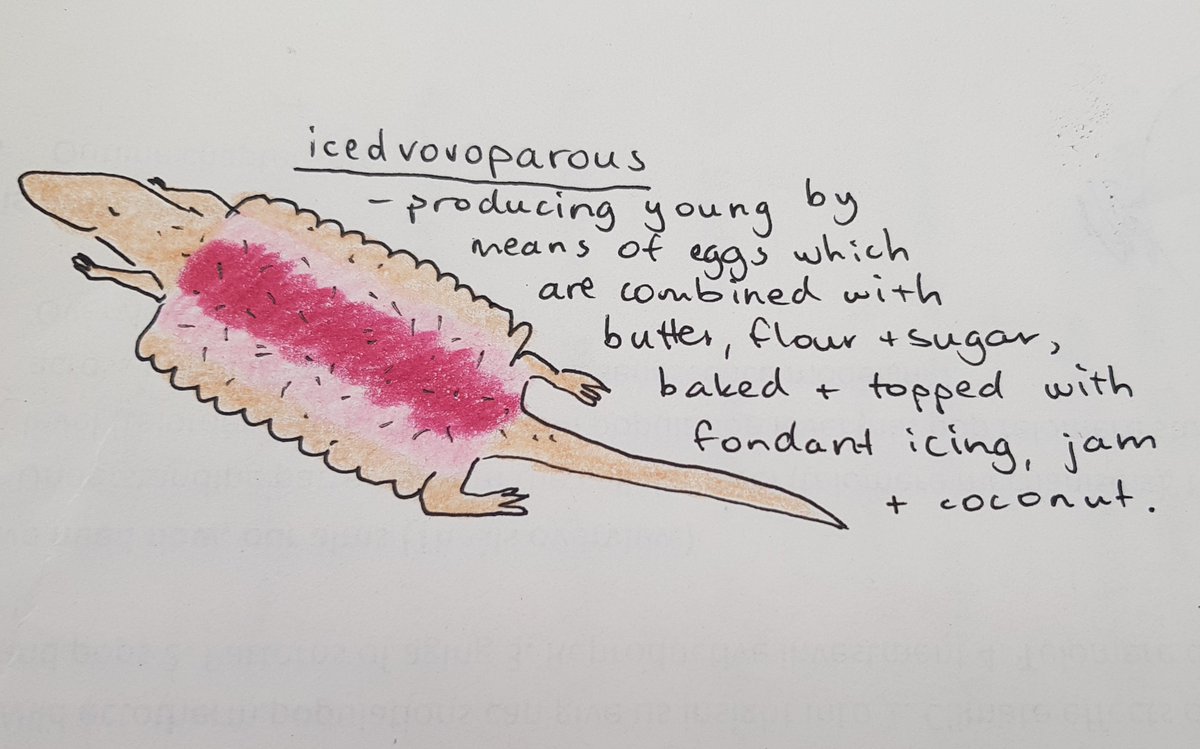 icedvovoparous
- producing young by
means of eggs which
are combined with
butter, flour + sugar,
baked + topped with
fondant icing, jam
+ coconut.